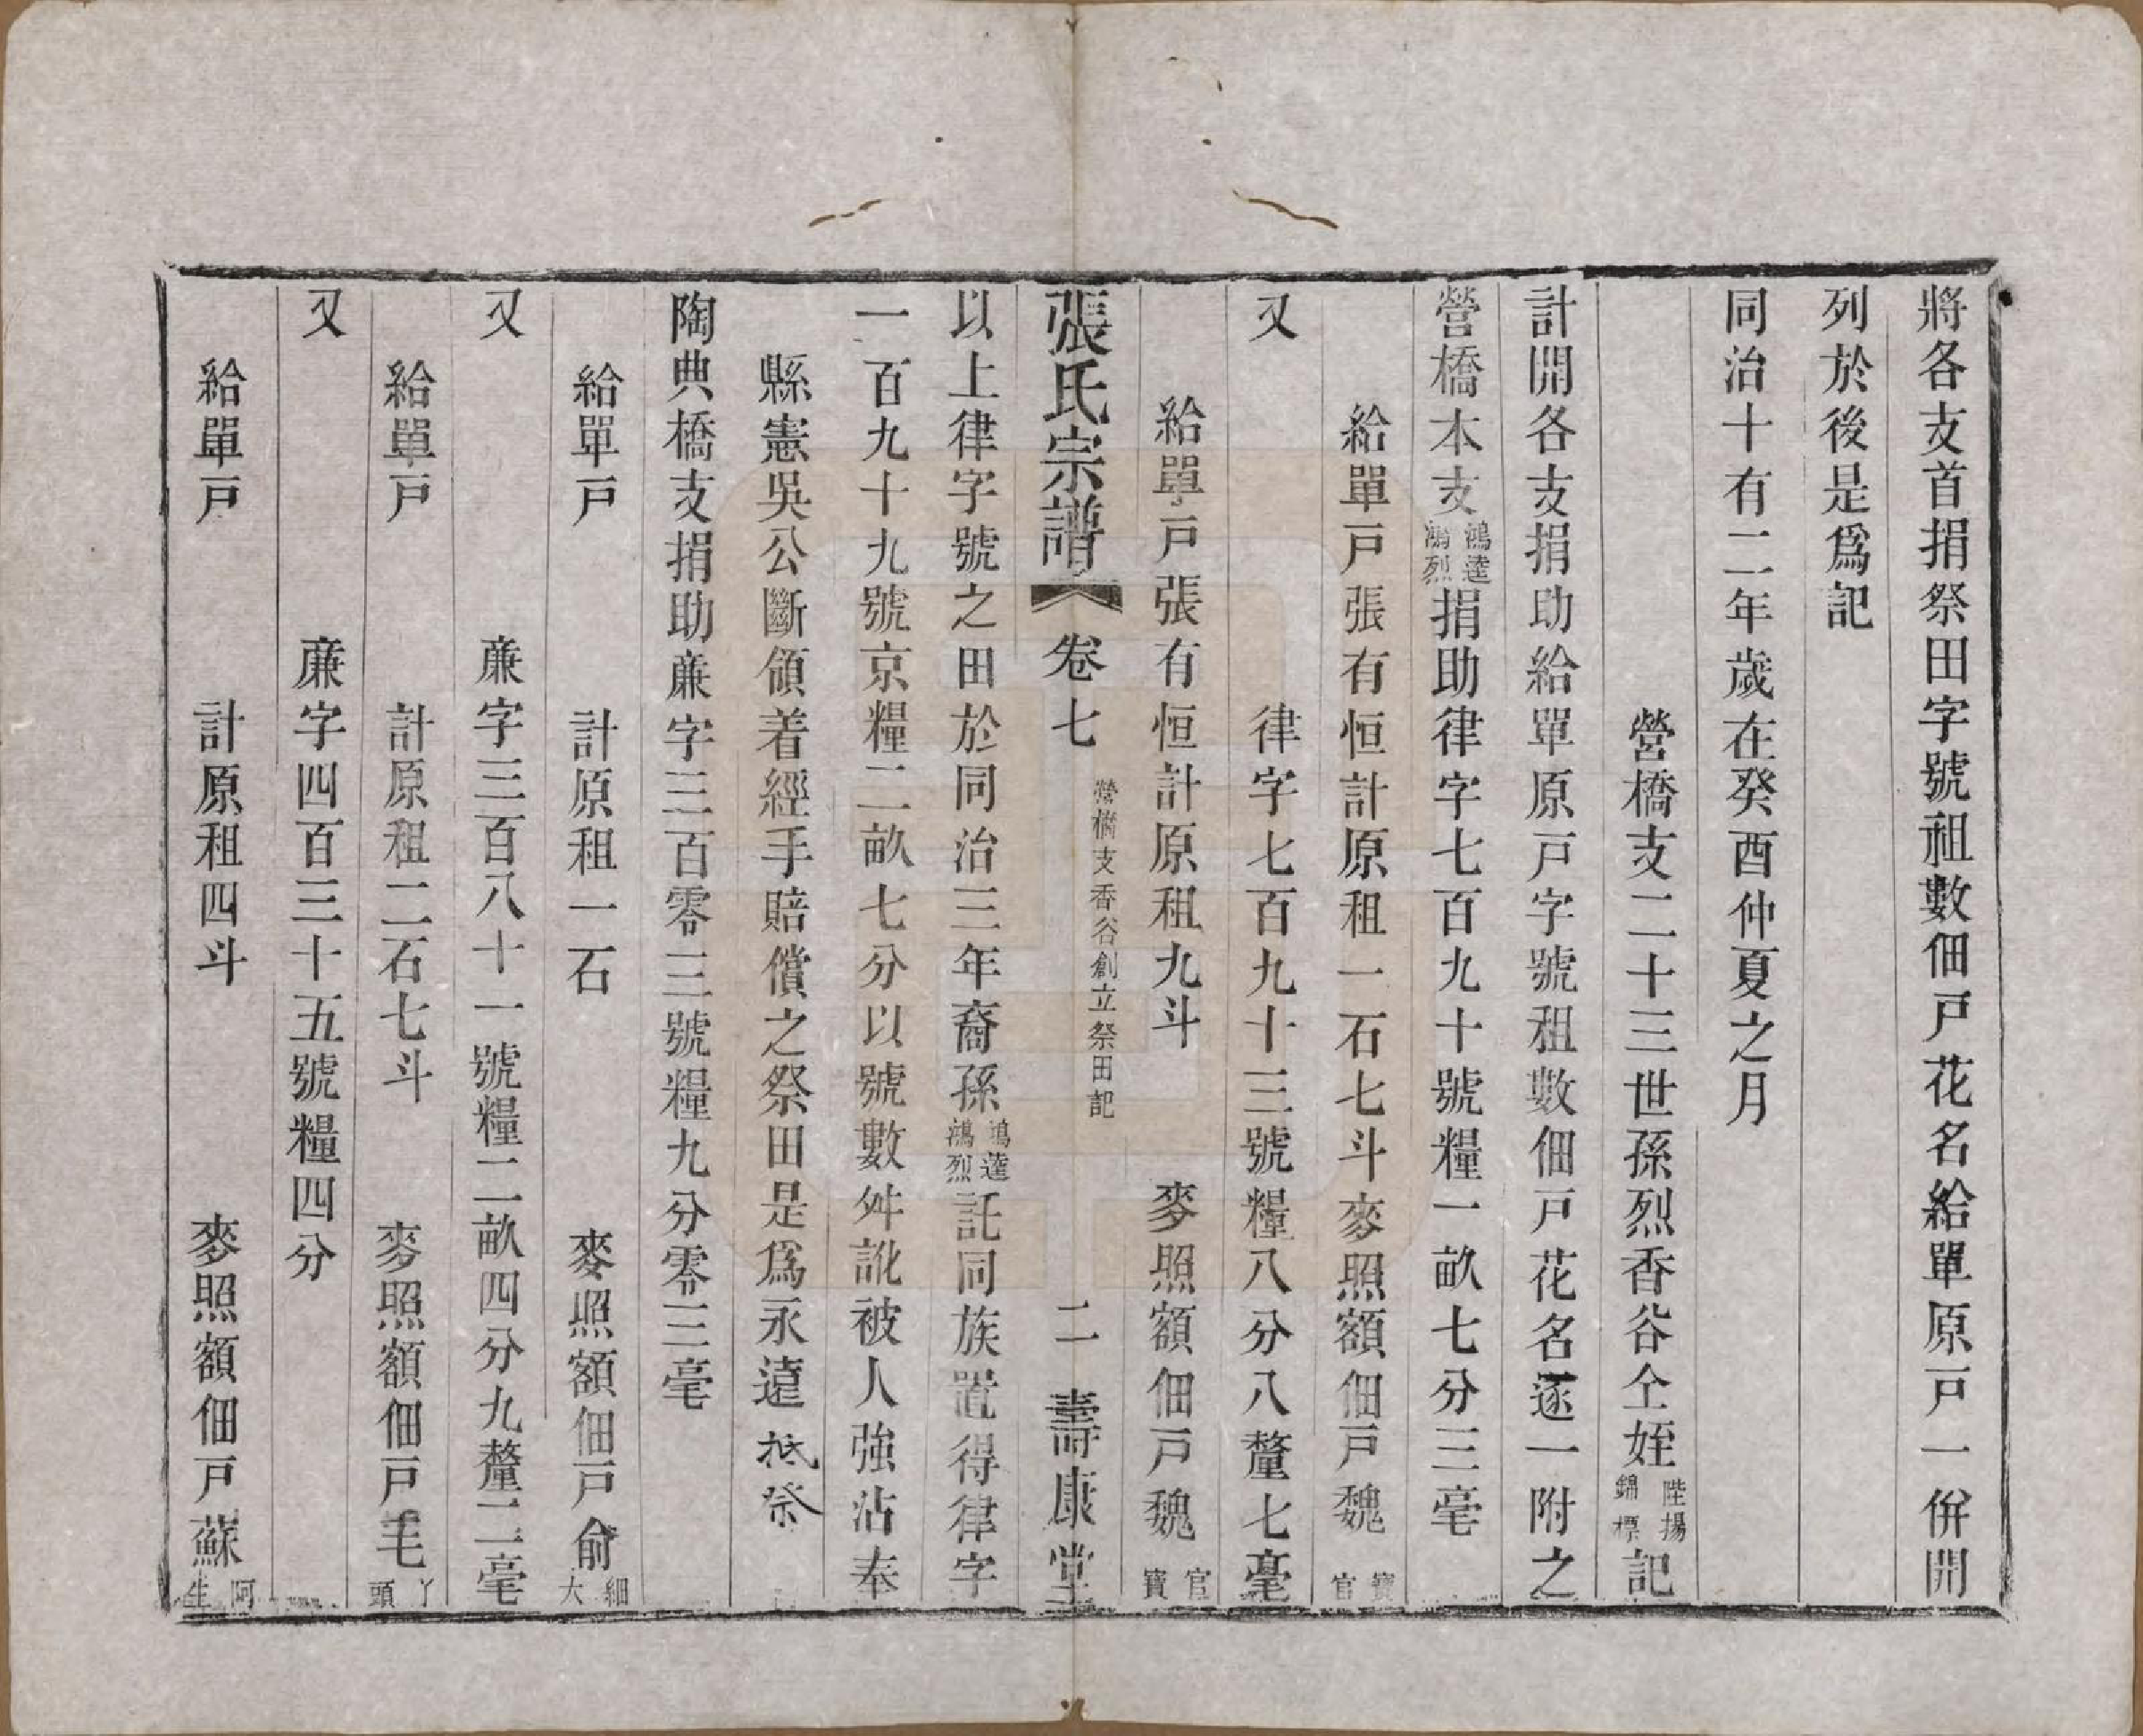 將各支首捐祭田字號租數佃戸花名給單原戸一併開
列於後是爲記
同治十有二年歲在癸酉仲夏之月
營橋支二十三世孫烈香谷仝姪陛揚錦標記
計開各支捐助給單原戸字號租數佃戸花名逐一附之
營橋本支鴻逵鴻烈捐助律字七百九十號糧一畝七分三毫
給單戸張有恒計原租一石七斗麥照額佃戸魏寶官
又　律字七百九十三號糧八分八釐七毫
給單戸張有恒計原租九斗　麥照額佃戸魏官寶
張氏宗譜　卷七　營橋支香谷創立祭田記　二　壽康堂
以上律字號之田於同治三年裔孫鴻逵鴻烈託同族置得律字
一百九十九號京糧二畝七分以號數舛訛被人強沾奉
縣憲吳公斷領着經手賠償之祭田是爲永遠祇祭
陶典橋支捐助亷字三百零三號糧九分零三毫
給單戸　計原租一石　麥照額佃戸俞細大
又　亷字三百八十一號糧二畝四分九釐二毫
給單戸　計原租二石七斗　麥照額佃戸毛丫頭
又　亷字四百三十五號糧四分
給單戸　計原租四斗　麥照額佃戸蘇阿生